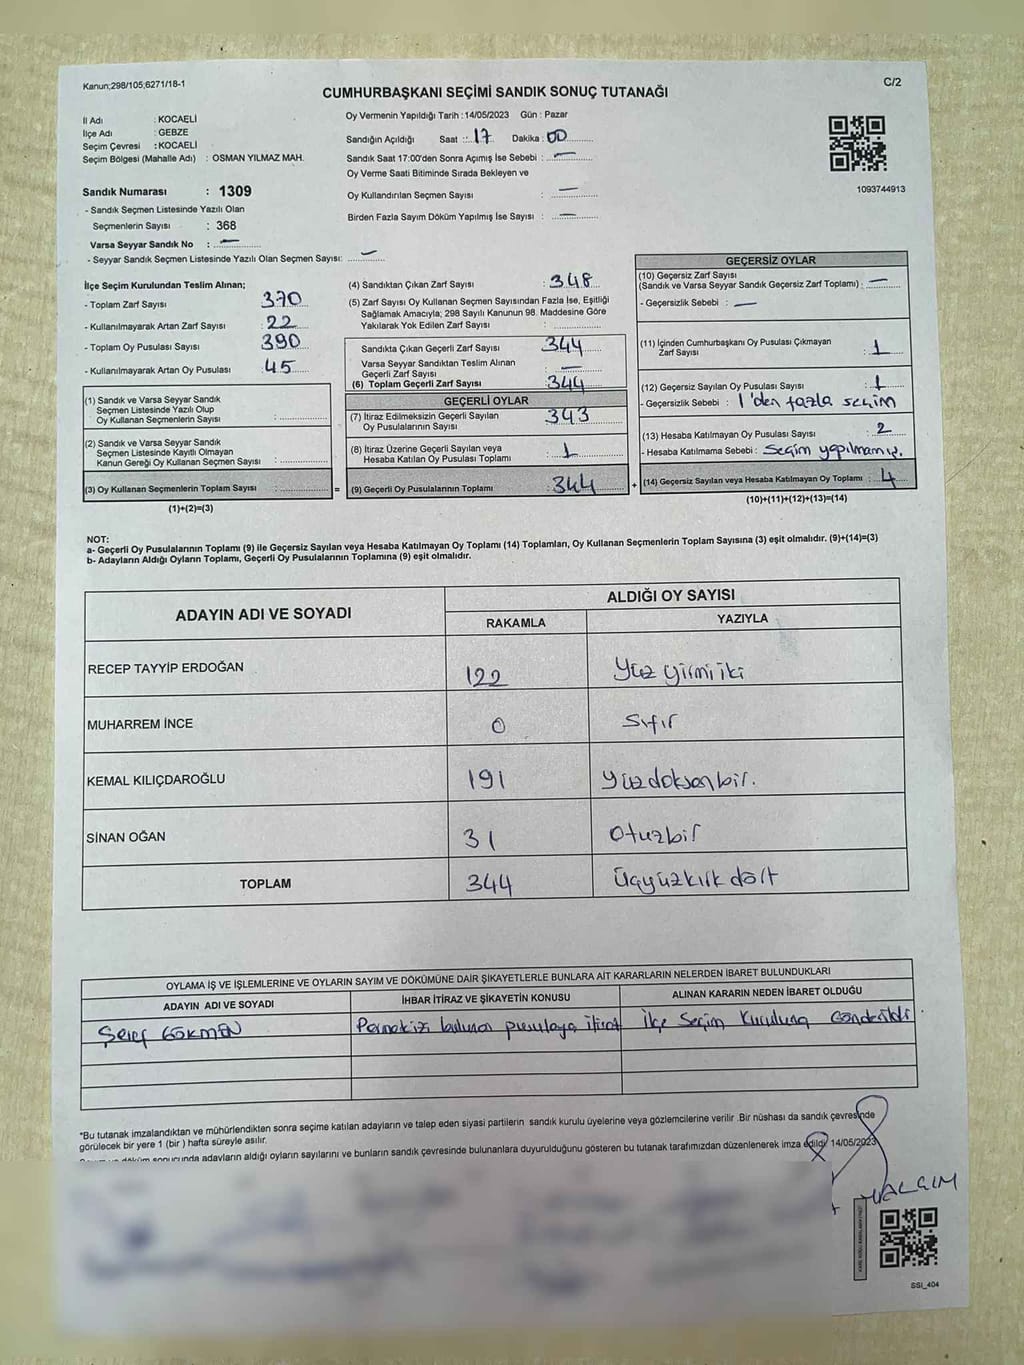 Kanun;298/105;6271/18-1
C/2
CUMHURBAŞKANI SEÇİMİ SANDIK SONUÇ TUTANAĞI
İl Adı : KOCAELİ
İlçe Adı : GEBZE
Seçim Çevresi : KOCAELİ
Seçim Bölgesi (Mahalle Adı) : OSMAN YILMAZ MAH.
Sandık Numarası : 1309
- Sandık Seçmen Listesinde Yazılı Olan
Seçmenlerin Sayısı : 368
Varsa Seyyar Sandık No : —
- Seyyar Sandık Seçmen Listesinde Yazılı Olan Seçmen Sayısı: —
Oy Vermenin Yapıldığı Tarih : 14/05/2023 Gün : Pazar
Sandığın Açıldığı Saat : 17 Dakika : 00
Sandık Saat 17:00'den Sonra Açımış İse Sebebi : —
Oy Verme Saati Bitiminde Sırada Bekleyen ve
Oy Kullandırılan Seçmen Sayısı : —
Birden Fazla Sayım Döküm Yapılmış İse Sayısı : —
1093744913
İlçe Seçim Kurulundan Teslim Alınan;
- Toplam Zarf Sayısı : 370
- Kullanılmayarak Artan Zarf Sayısı : 22
- Toplam Oy Pusulası Sayısı : 390
- Kullanılmayarak Artan Oy Pusulası : 45
(1) Sandık ve Varsa Seyyar Sandık
Seçmen Listesinde Yazılı Olup
Oy Kullanan Seçmenlerin Sayısı :
(2) Sandık ve Varsa Seyyar Sandık
Seçmen Listesinde Kayıtlı Olmayan
Kanun Gereği Oy Kullanan Seçmen Sayısı :
(3) Oy Kullanan Seçmenlerin Toplam Sayısı :
(1)+(2)=(3)
(4) Sandıktan Çıkan Zarf Sayısı : 348
(5) Zarf Sayısı Oy Kullanan Seçmen Sayısından Fazla İse, Eşitliği
Sağlamak Amacıyla; 298 Sayılı Kanunun 98. Maddesine Göre
Yakılarak Yok Edilen Zarf Sayısı :
Sandıkta Çıkan Geçerli Zarf Sayısı 344
Varsa Seyyar Sandıktan Teslim Alınan
Geçerli Zarf Sayısı : —
(6) Toplam Geçerli Zarf Sayısı : 344
GEÇERLİ OYLAR
(7) İtiraz Edilmeksizin Geçerli Sayılan
Oy Pusulalarının Sayısı : 343
(8) İtiraz Üzerine Geçerli Sayılan veya
Hesaba Katılan Oy Pusulası Toplamı : 1
= (9) Geçerli Oy Pusulalarının Toplamı : 344 +
GEÇERSİZ OYLAR
(10) Geçersiz Zarf Sayısı
(Sandık ve Varsa Seyyar Sandık Geçersiz Zarf Toplamı) : —
- Geçersizlik Sebebi : —
(11) İçinden Cumhurbaşkanı Oy Pusulası Çıkmayan
Zarf Sayısı : 1
(12) Geçersiz Sayılan Oy Pusulası Sayısı : 1
- Geçersizlik Sebebi : 1'den fazla seçim
(13) Hesaba Katılmayan Oy Pusulası Sayısı : 2
- Hesaba Katılmama Sebebi : Seçim yapılmamış.
(14) Geçersiz Sayılan veya Hesaba Katılmayan Oy Toplamı : 4
(10)+(11)+(12)+(13)=(14)
NOT:
a- Geçerli Oy Pusulalarının Toplamı (9) ile Geçersiz Sayılan veya Hesaba Katılmayan Oy Toplamı (14) Toplamları, Oy Kullanan Seçmenlerin Toplam Sayısına (3) eşit olmalıdır. (9)+(14)=(3)
b- Adayların Aldığı Oyların Toplamı, Geçerli Oy Pusulalarının Toplamına (9) eşit olmalıdır.
ADAYIN ADI VE SOYADI ALDIĞI OY SAYISI
RAKAMLA YAZIYLA
RECEP TAYYİP ERDOĞAN 122 Yüz yirmi iki
MUHARREM İNCE 0 Sıfır
KEMAL KILIÇDAROĞLU 191 Yüzdoksanbir.
SİNAN OĞAN 31 Otuzbir
TOPLAM 344 Üçyüzkırk dört
OYLAMA İŞ VE İŞLEMLERİNE VE OYLARIN SAYIM VE DÖKÜMÜNE DAİR ŞİKAYETLERLE BUNLARA AİT KARARLARIN NELERDEN İBARET BULUNDUKLARI
ADAYIN ADI VE SOYADI İHBAR İTİRAZ VE ŞİKAYETİN KONUSU ALINAN KARARIN NEDEN İBARET OLDUĞU
Şeref GÖKMEN Parmakizi bulunan pusulaya itiraz İlçe Seçim Kuruluna Gönderildi
*Bu tutanak imzalandıktan ve mühürlendikten sonra seçime katılan adayların ve talep eden siyasi partilerin sandık kurulu üyelerine veya gözlemcilerine verilir .Bir nüshası da sandık çevresinde
görülecek bir yere 1 (bir ) hafta süreyle asılır.
sonucunda adayların aldığı oyların sayılarını ve bunların sandık çevresinde bulunanlara duyurulduğunu gösteren bu tutanak tarafımızdan düzenlenerek imza edildi 14/05/2023
SSI_404